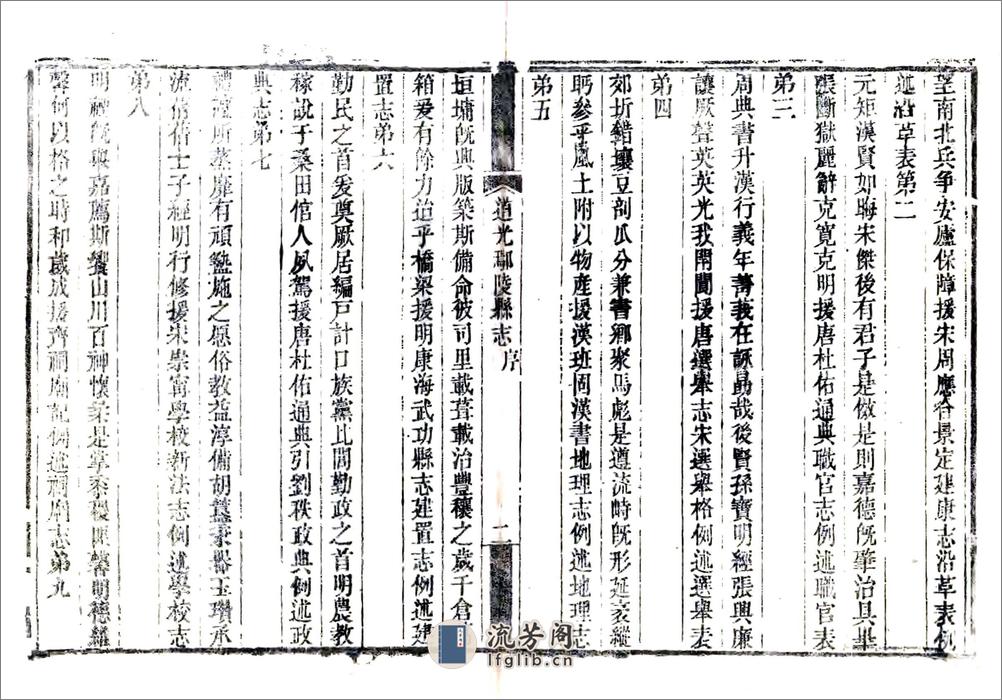 望南北兵爭安廬保障援宋周應合景定建康志沿革表例
述沿革表第二
元矩漢賢如晦宋傑後有君子是儆是則嘉德旣肇治具畢
張斷獄麗辭克寬克明援唐杜佑通典職官志例述職官表
弟三
周典書升漢行義年菁莪在詠昜哉後賢孫寶明經張興廉
讓厥聲英英光我閈閎援唐選舉志宋選舉格例述選舉表
弟四
郊圻錯壤豆剖瓜分兼書鄉聚馬彪是遵流峙旣形延袤縱
眄參乎風土附以物產援漢班固漢書地理志例述地理志
弟五
道光鄢陵縣志 序 二
垣墉旣興版築斯備命彼司里載葺載治豐穰之歲千倉
箱爰有餘力迨乎橋梁援明康海武功縣志建置志例述建
置志弟六
勤民之首爰奠厥居編戸計口族黨比閭勤政之首明農教
稼說于桑田倌人夙駕援唐杜佑通典引劉秩政典例述政
典志弟七
禮憲所蒸靡有頑蠢施之愿俗教益淳備胡簋秉器玉瓚承
流倩倩士子經明行修援宋崇甯學校新法志例述學校志
弟八
明禋旣興嘉薦斯饗山川百神懷柔是掌黍稷匪馨明德維
馨何以格之時和歲成援齊祠廟記例述祠廟志弟九
流芳阁
lfglib.cn